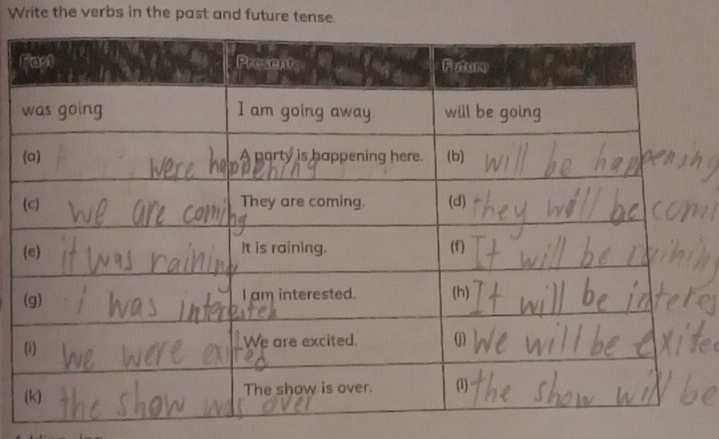 Write the verbs in the past and future tense.
Past Present Future
was going I am going away. will be going
(a) were happening A party is happening here. (b) will be happening
(c) we are coming They are coming. (d) they will be comi
(e) it was raining It is raining. (f) It will be raining
(g) i was interested I am interested. (h) It will be interes
(i) we were exited We are excited. (j) We will be exited
(k) the show was over The show is over. (l) the show will be